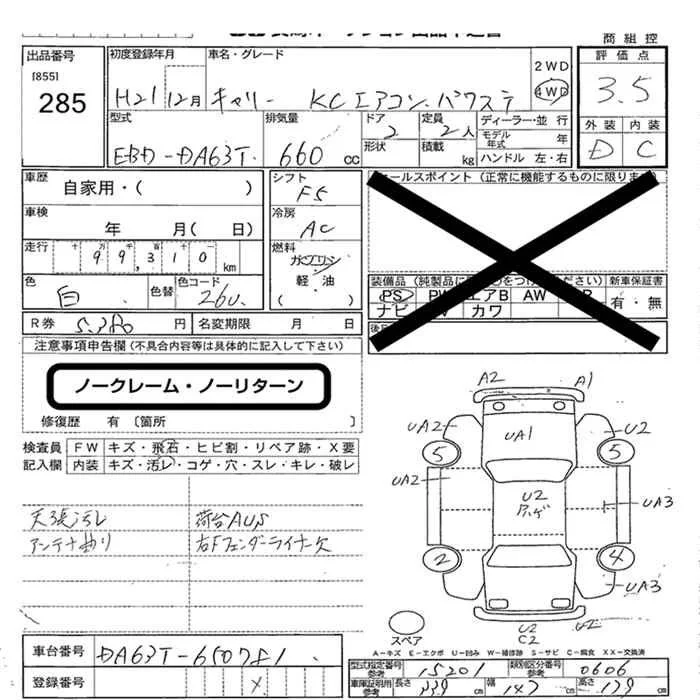 商組控
出品番号
[855]
285
初度登録年月
H21 12月
車名・グレード
キャリー KCエアコン・パワステ
2WD
4WD
評価点
3.5
外装 内装
D C
型式
EBD-DA63T
排気量
660 cc
ドア
2
形状
定員
2人
積載 kg
ディーラー・並行
モデル年式 年
ハンドル 左・右
車歴
自家用・( )
車検
年 月( 日)
走行
十 万 千 百 十
99,310 km
色
白
色替
色コード
26U
シフト
F5
冷房
AC
燃料
ガソリン
軽・油
( )
R券 5,380 円
名変期限 月 日
セールスポイント (正常に機能するものに限ります)
装備品
PS PW エアB AW
ナビ カワ
新車保証書
有・無
注意事項申告欄 (不具合内容等は具体的に記入して下さい)
ノークレーム・ノーリターン
修復歴 有 〔箇所 〕
検査員記入欄
FW キズ・飛石・ヒビ割・リペア跡・X要
内装 キズ・汚レ・コゲ・穴・スレ・キレ・破レ
天張汚レ
荷台AUS
アンテナ曲り
右Fフェンダーライナー欠
A2 A1
UA2 U2
UA1
5 5
UA2 UA3
U2
2 4
UA3
U2
C2
U2
スペア
A-キズ E-エクボ U-凹み W-補修跡 S-サビ C-腐食 XX-交換済
車台番号
登録番号
X
型式指定番号参考
15201
類別区分番号参考
0606
車庫証明用参考
長さ 339 cm
幅 147 cm
高さ cm